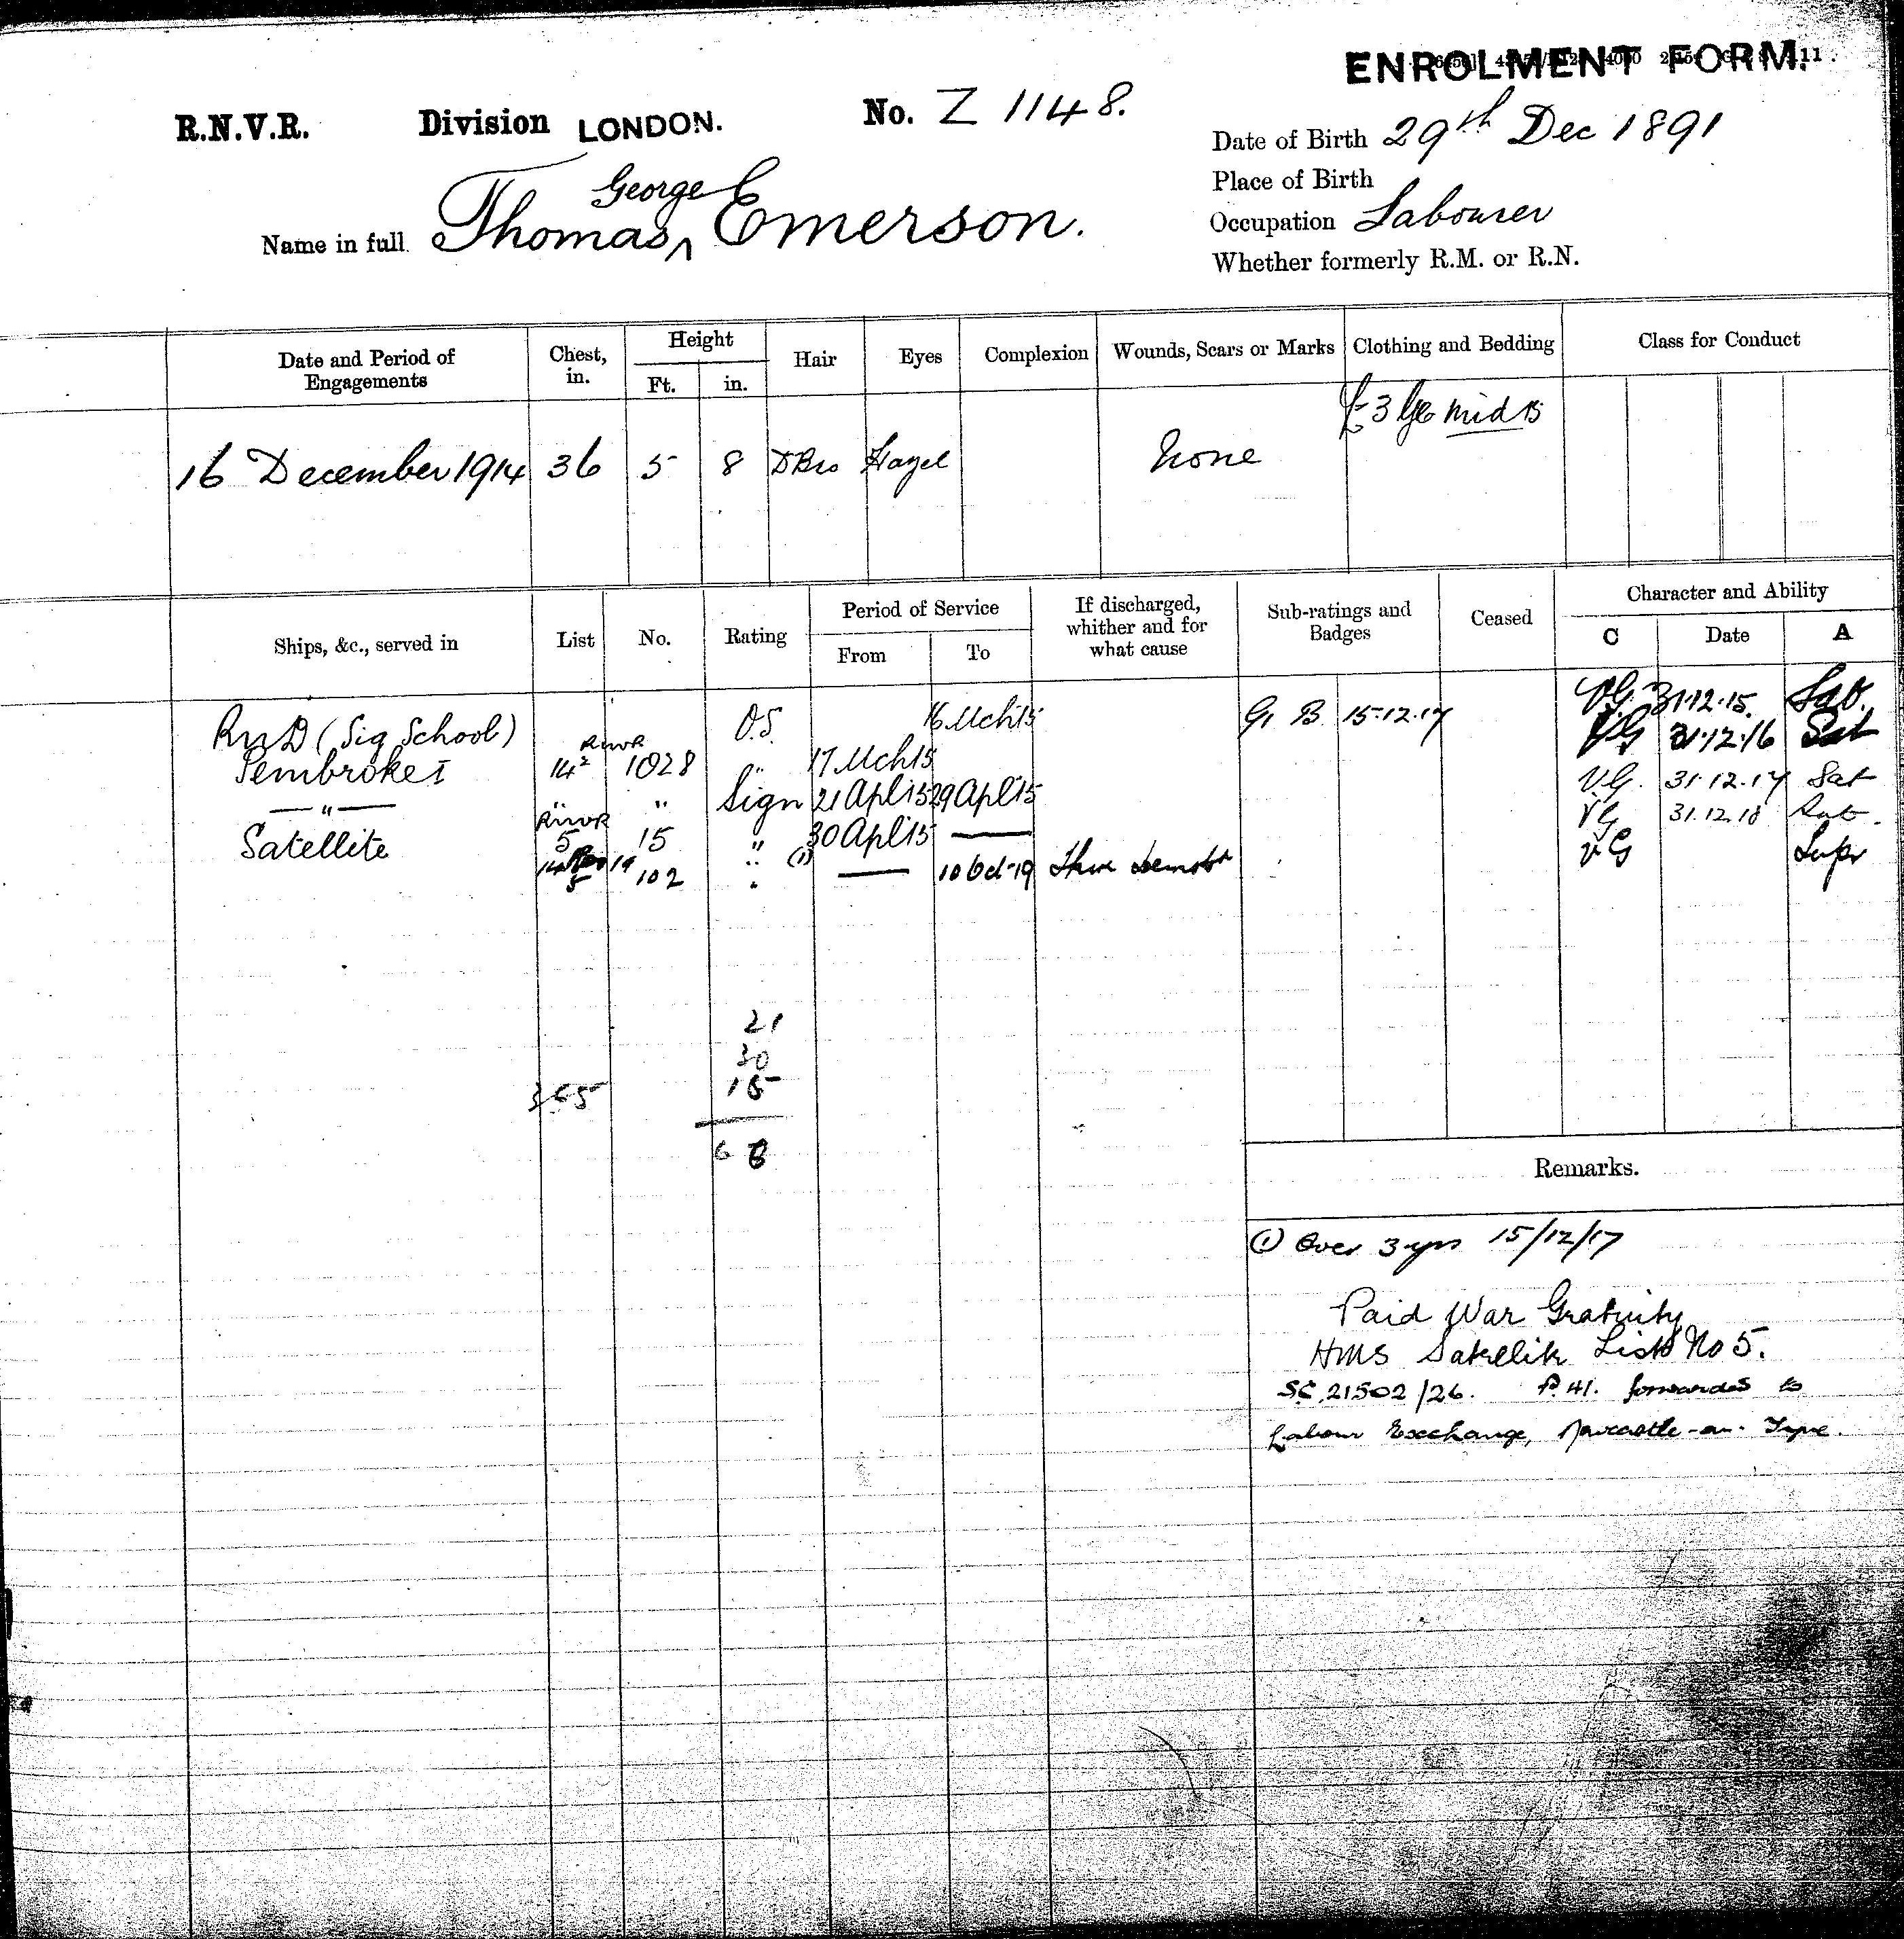 ENROLMENT FORM.
R.N.V.R. Division LONDON. No. Z 1148.
Date of Birth 29th Dec 1891
Place of Birth
George
Name in full Thomas ^ Emerson.
Occupation Labourer
Whether formerly R.M. or R.N.
Date and Period of Engagements
Chest, in.
Height
Ft. in.
Hair
Eyes
Complexion
Wounds, Scars or Marks
Clothing and Bedding
Class for Conduct
£3 mid 15
16 December 1914 36 5 8 D Bro Hazel None
Ships, &c., served in
List
No.
Rating
Period of Service
From To
If discharged, whither and for what cause
Sub-ratings and Badges
Ceased
Character and Ability
C Date A
RND (Sig School) O.S. 16 Mch 15 G. B. 15.12.17 VG. 31.12.15. Sat.
Pembroke I RNVR 14² 1028 " 17 Mch 15 VG 31.12.16 Sat
—"— " " Sign 21 Apl 15 29 Apl 15 VG. 31.12.17 Sat
Satellite RNVR 5 15 " 30 Apl 15 — VG 31.12.18 Sat.
5 102 " (1) — 10 Oct 19 Shore Demobd VG Supr
21
30
365 15
6 8
Remarks.
(1) Over 3 yrs 15/12/17
Paid War Gratuity
HMS Satellite List No 5.
SC. 21502/26. P. 41. forwarded to
Labour Exchange, Newcastle-on-Tyne.